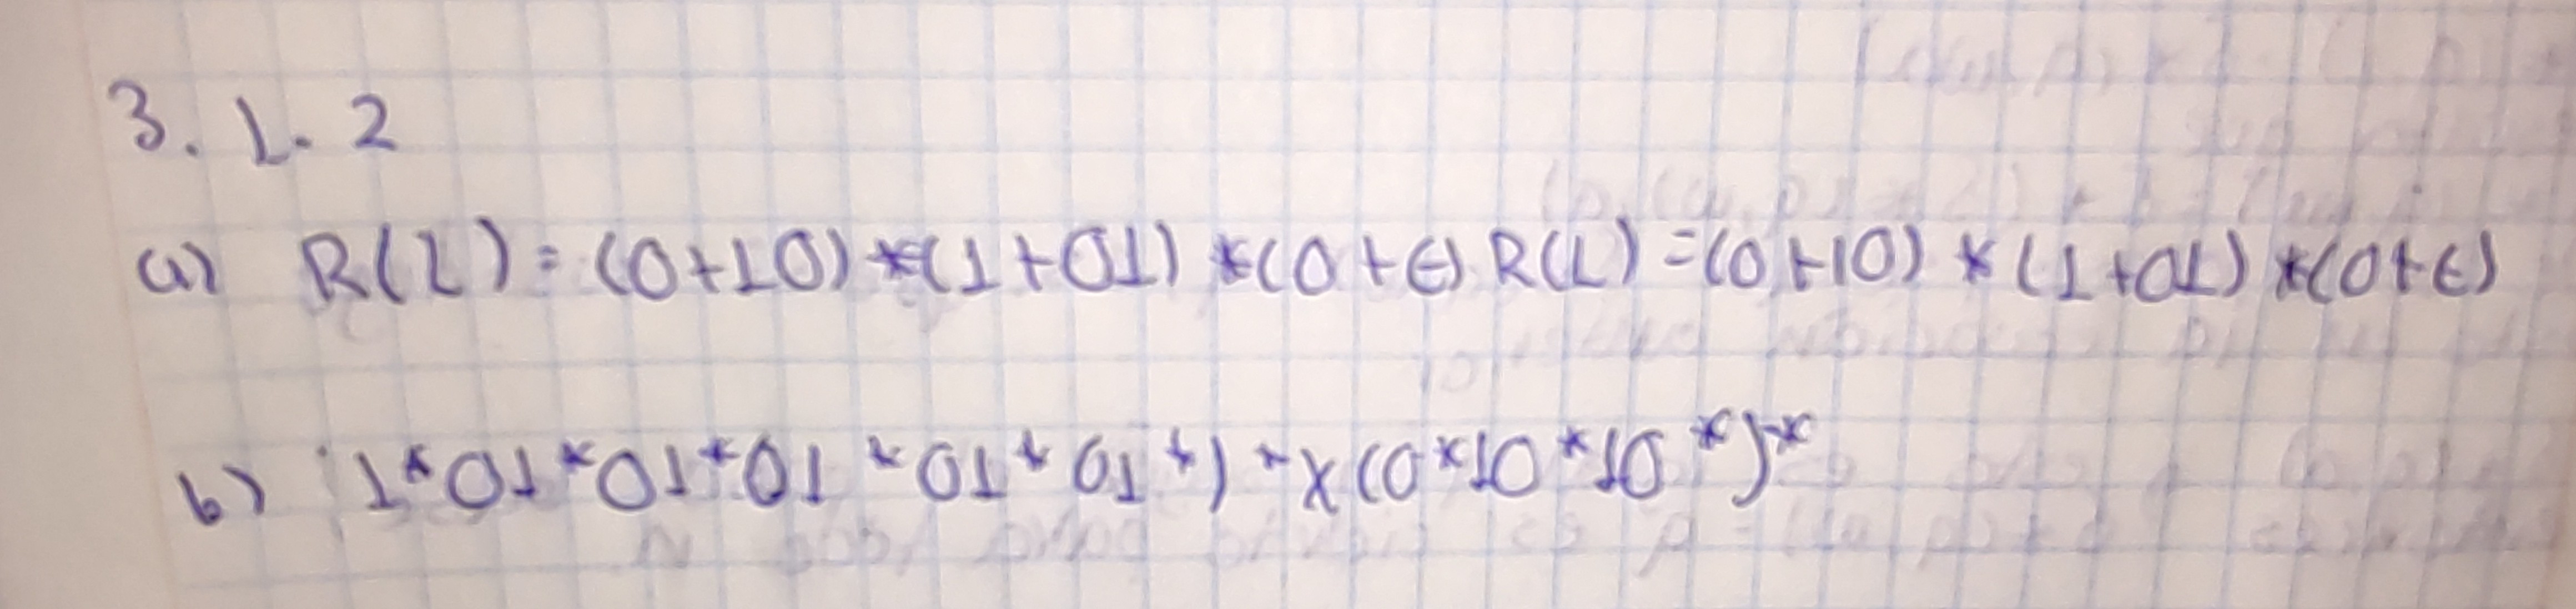 3. 1. 2
a) R(L) = (0+10)*(1+01)*(0+ϵ) R(L) = (0+10)*(1+01)*(0+ϵ)
b) 1*01*01*01*01*01*01*) *x(0*10*10*)*